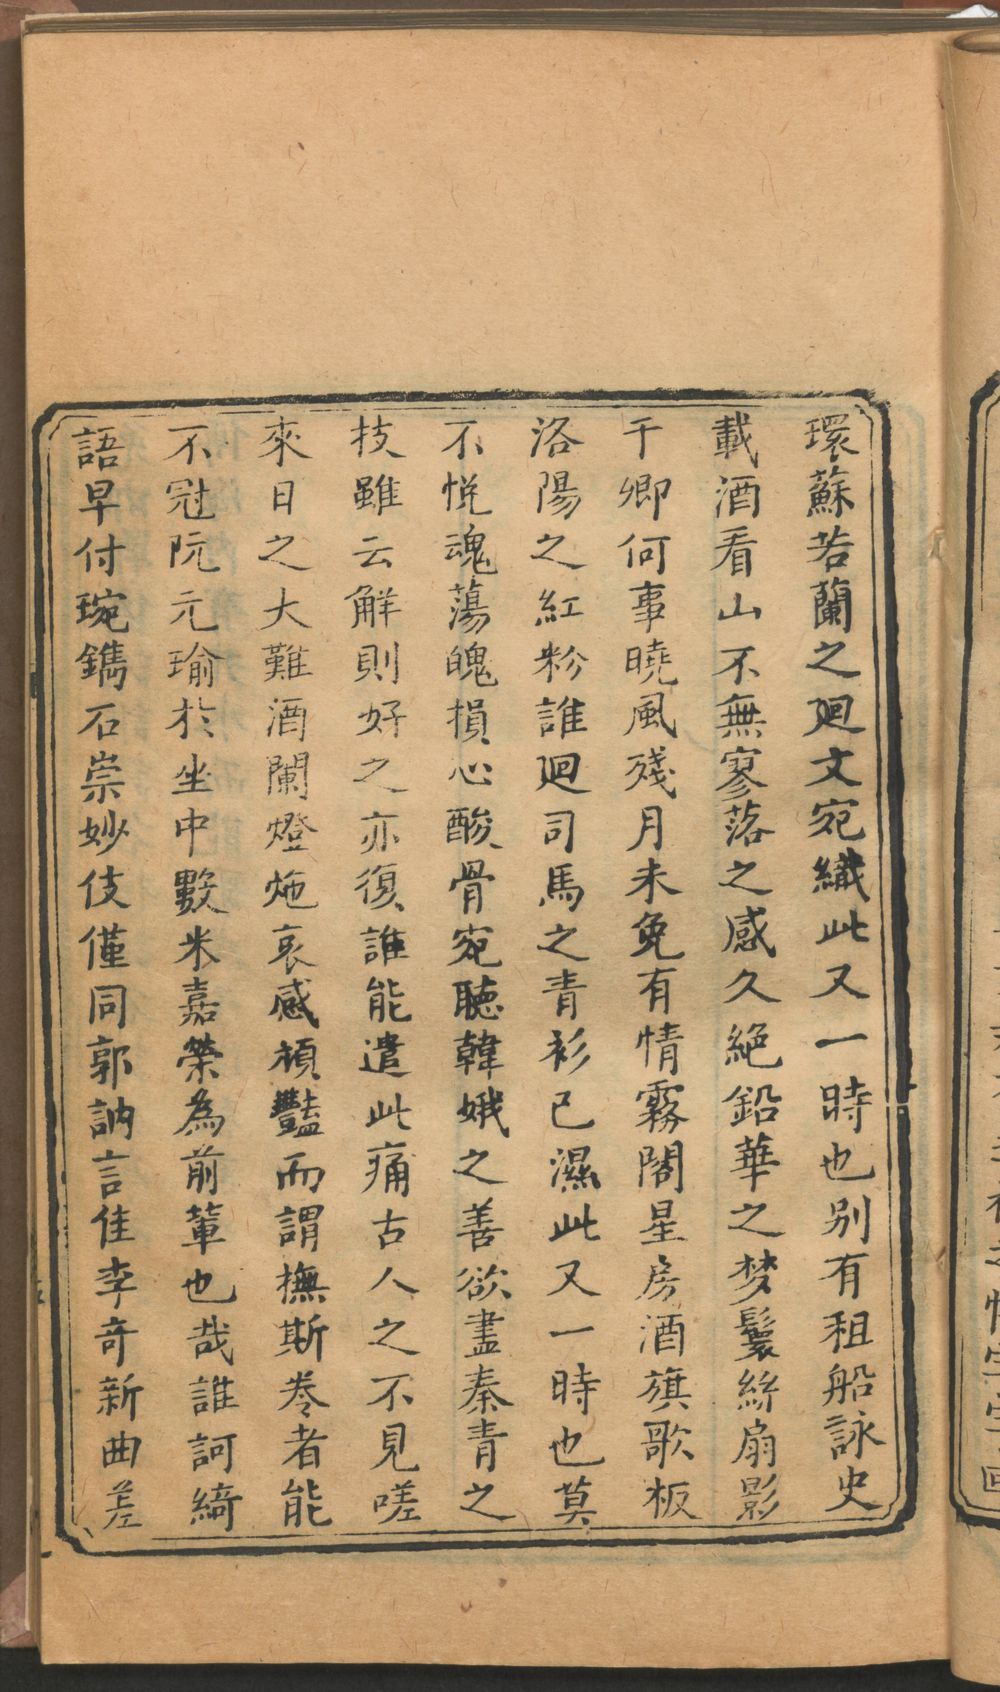 環蘇若蘭之廻文宛織此又一時也別有租船詠史
載酒看山不無寥落之感久絕鉛華之梦鬟絲扇影
干卿何事曉風殘月未免有情霧閣星房酒旗歌板
洛陽之紅粉誰廻司馬之青衫已濕此又一時也莫
不悅魂蕩魄損心酸骨宛聽韓娥之善欲盡秦青之
技雖云解則好之亦復誰能遣此痛古人之不見嗟
來日之大難酒闌燈炧哀感頑豔而謂撫斯卷者能
不冠阮元瑜於坐中數米嘉榮為前輩也哉誰訶綺
語早付琬鐫石崇妙伎僅同郭訥言佳李奇新曲差